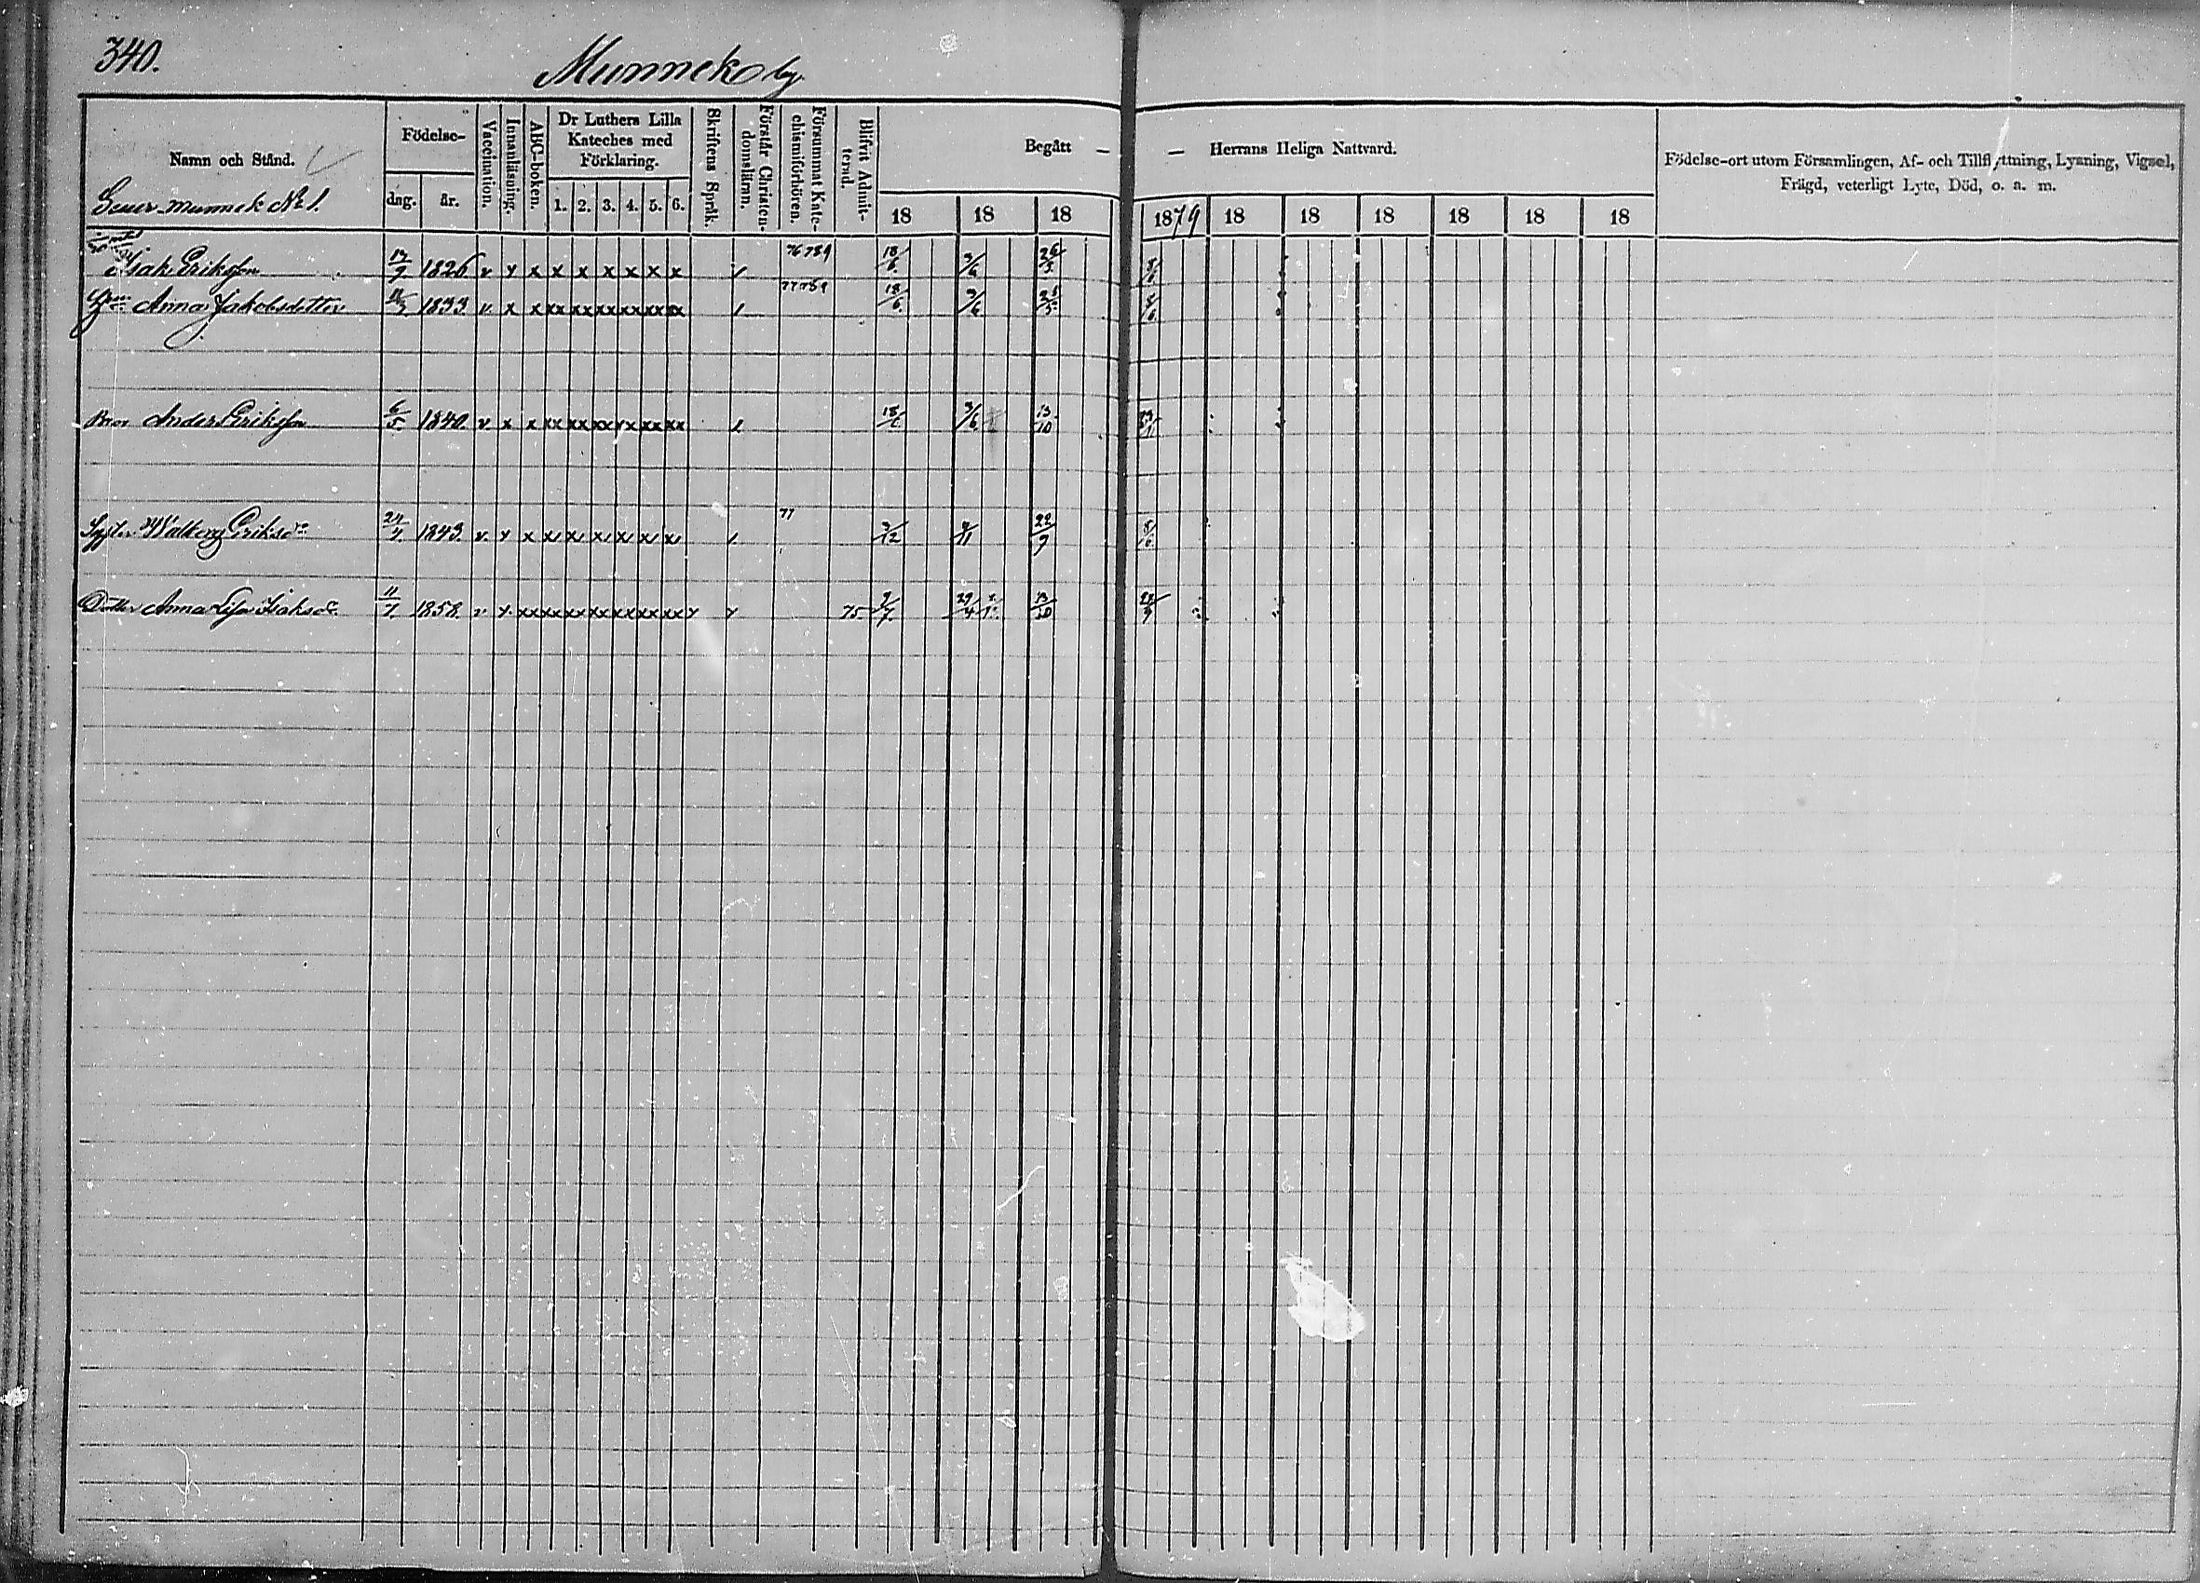 340. Munneks by
Namn och Stånd. Födelse- dag. år. Vaccination. Innanläsning. ABC-boken. Dr Luthers Lilla Kateches med Förklaring. 1. 2. 3. 4. 5. 6. Skriftens Språk. Förstår Christendomsläran. Försummat Katechismiförhören. Blifvit Admitterad. Begått — — Herrans Heliga Nattvard. Födelse-ort utom Församlingen, Af- och Tillflyttning, Lysning, Vigsel, Frägd, veterligt Lyte, Död, o. a. m.
18 18 18 1879 18 18 18 18 18 18
Munnek No 1.
Isak Eriksson 1826 v x x x x x x x x 76 789 18/6 9/6 26/5 8/6
Anna Jakobsdotter 1833 v x x xx xx xx xx xx xx 77 789 18/6 9/6 26/5 8/6
Bror Anders Eriksson 6/5 1840 v x x xx xx xx xx xx xx 9/6 13/10
Syster Walborg Eriksdr 24/4 1843 v x x 77 3/12 22/9 8/6
Dotter Anna Lisa Isaksdr 11/7 1858 v x xx xx xx xx xx xx xx 75 29/4 13/10